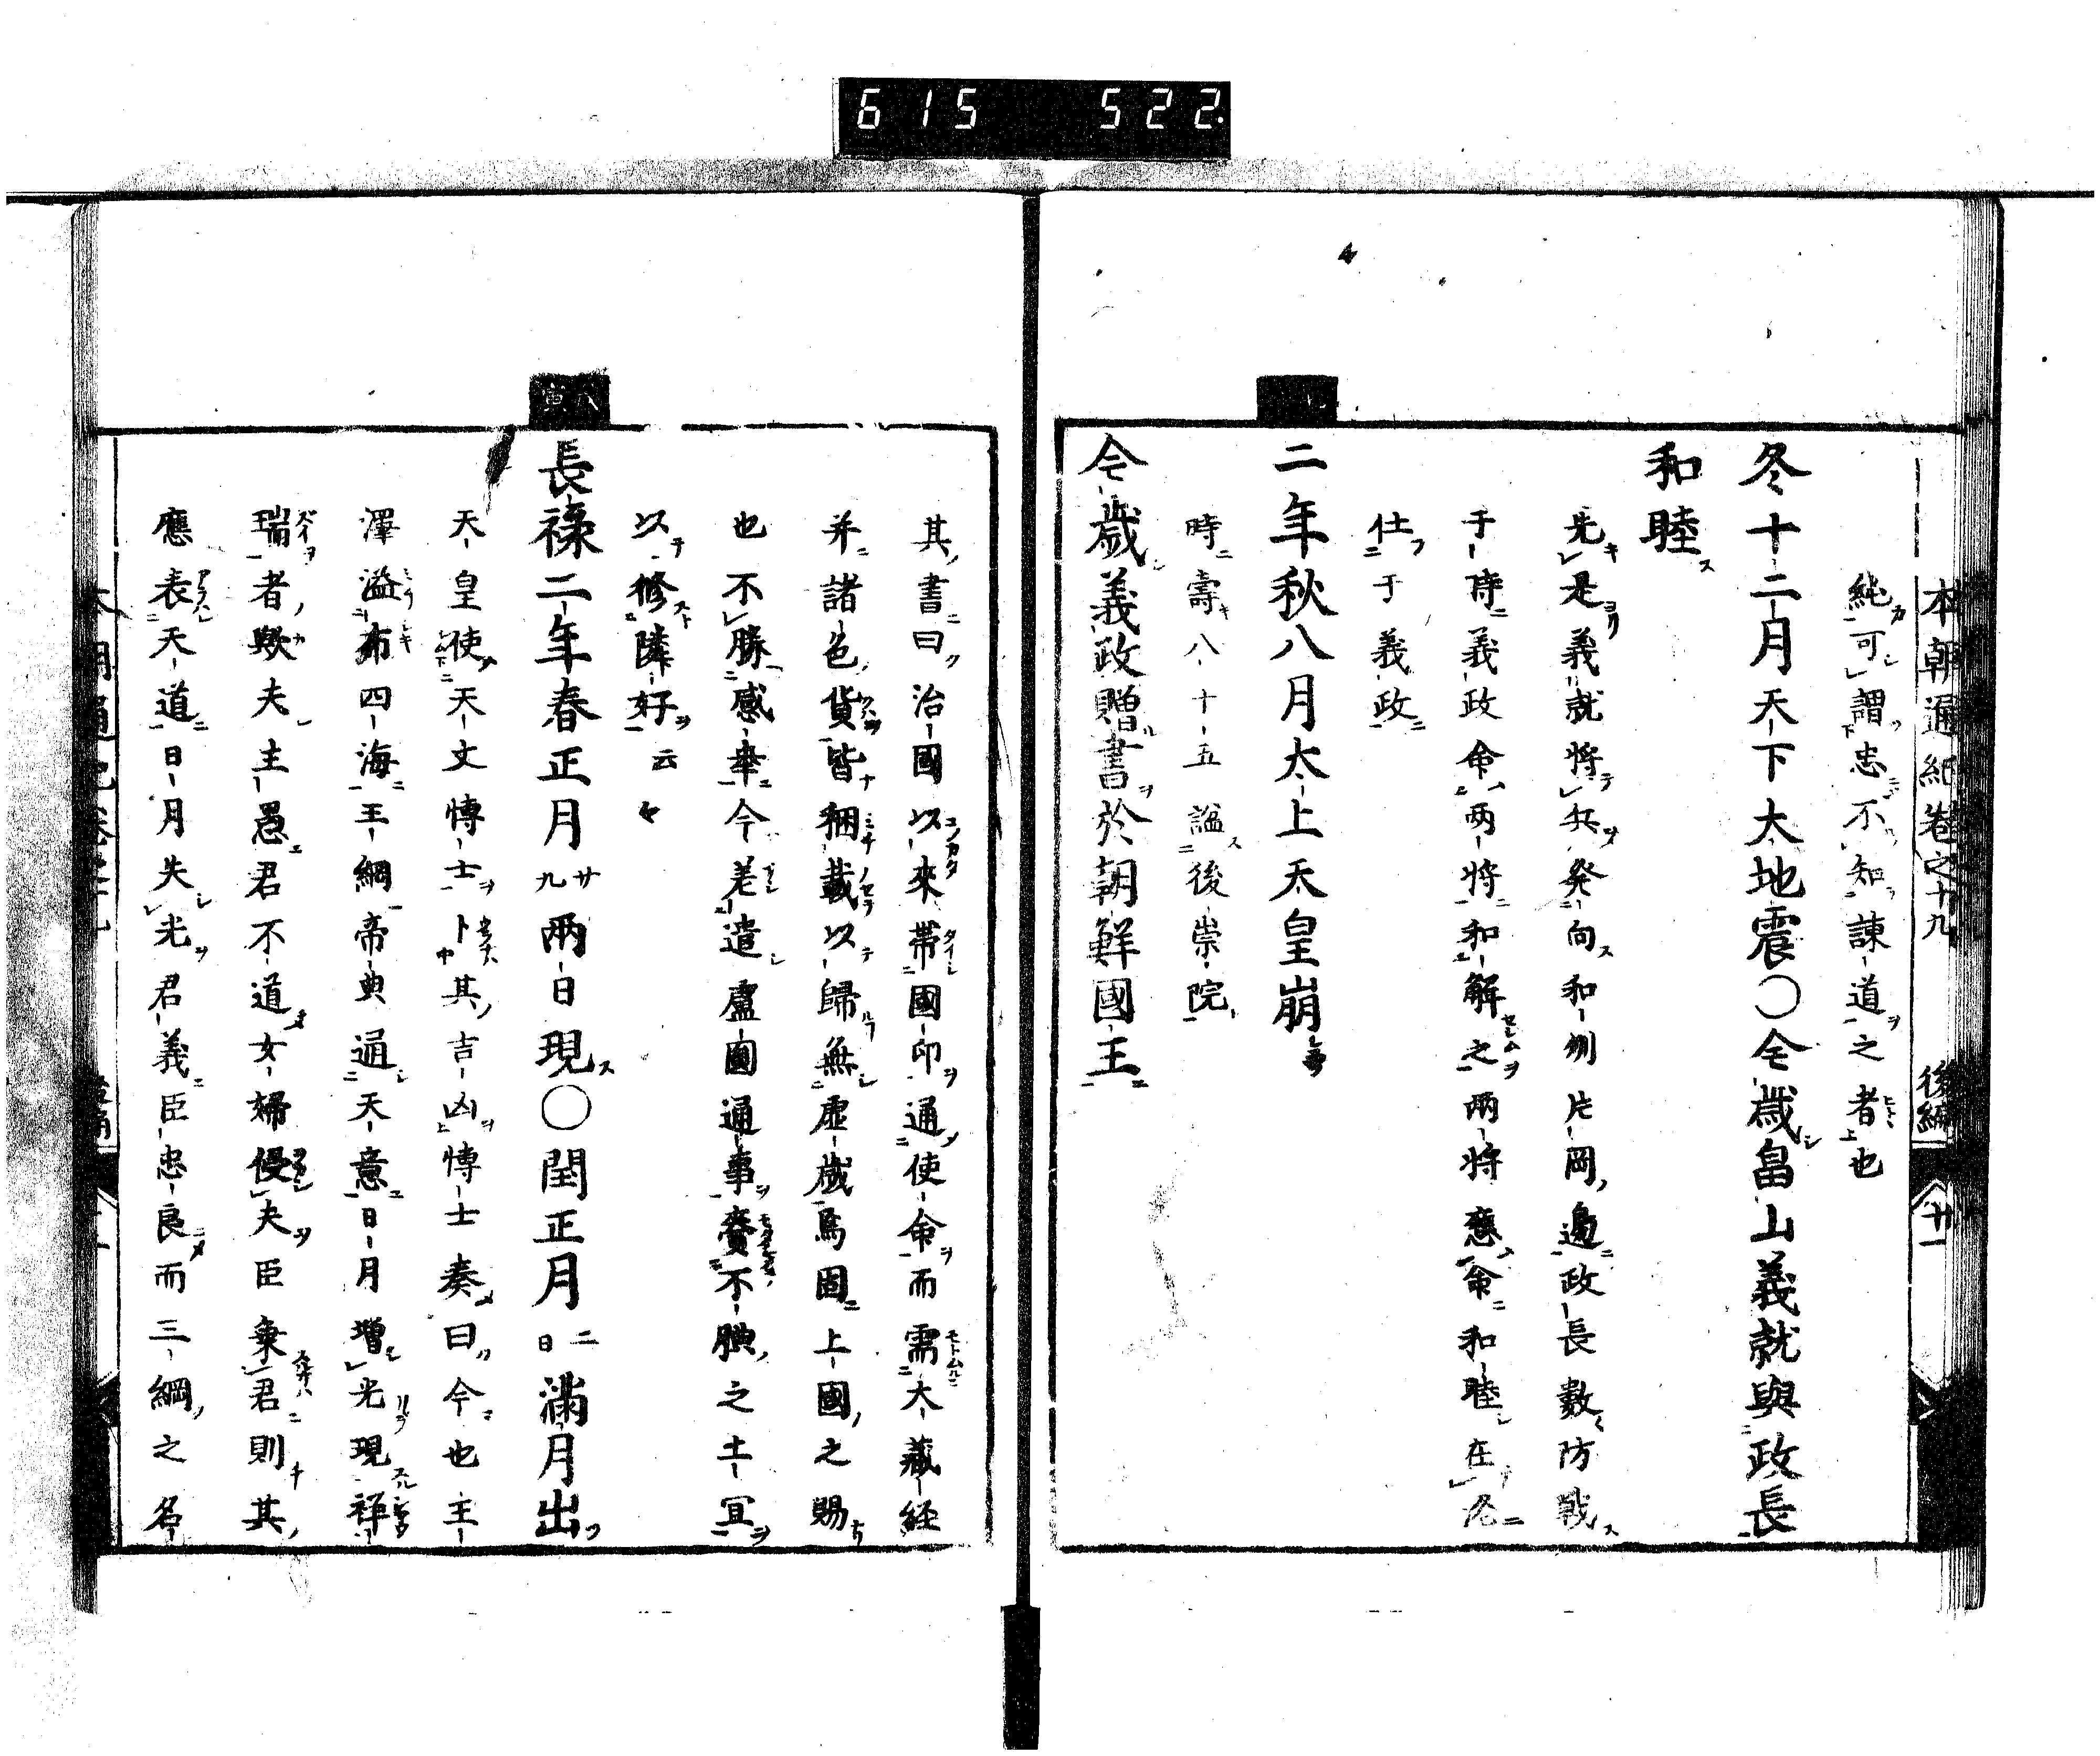 615 522.
本朝通紀卷之十九 後編 廿一
純可謂忠不知諌道之者也
冬十二月天下大地震〇今歳畠山義就與政長
和睦
先是義就將兵発向和州片岡邊政長數防戰
于時義政命两將和解之两將應命和睦在洛
仕于義政
二年秋八月太上天皇崩
時壽八十五謚後崇院
今歳義政贈書於朝鮮國王
其書曰治國以來帯國印通使命而需大藏経
并諸色貨皆稇載以歸無虚歳焉固上國之賜
也不勝感幸今差遣盧圓通事賫不腆之土冝
以修隣好云々
寅
長祿二年春正月廿九兩日現〇閏正月二日滿月出
天皇使天文博士卜其吉凶博士奏曰今也主
澤溢布四海王綱帝典通天意日月增光現祥
瑞者歟夫主愚君不道女婦侵夫臣棄君則其
應表天道日月失光君義臣忠良而三綱之名